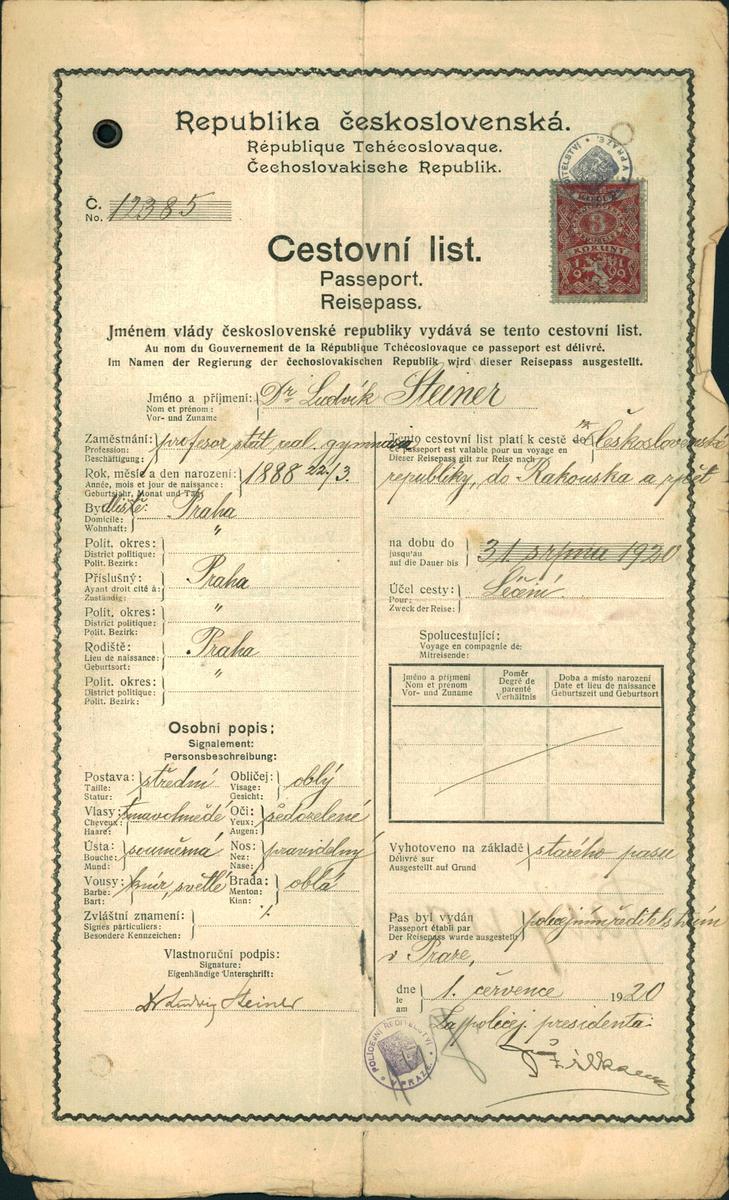 Republika československá.
République Tchécoslovaque.
Čechoslovakische Republik.
Č.
No. 12385
3
KORUNY
1919
Cestovní list.
Passeport.
Reisepass.
Jménem vlády československé republiky vydává se tento cestovní list.
Au nom du Gouvernement de la République Tchécoslovaque ce passeport est délivré.
Im Namen der Regierung der čechoslovakischen Republik wird dieser Reisepass ausgestellt.
Jméno a příjmení: Dr Ludvík Steiner
Nom et prénom:
Vor- und Zuname
Zaměstnání: profesor stát. real. gymnasia
Profession:
Beschäftigung:
Rok, měsíc a den narození: 1888 22./3.
Année, mois et jour de naissance:
Geburtsjahr, Monat und Tag:
Bydliště: Praha
Domicile:
Wohnhaft: "
Polit. okres:
District politique:
Polit. Bezirk:
Příslušný: Praha
Ayant droit cité à:
Zuständig:
Polit. okres: "
District politique:
Polit. Bezirk:
Rodiště: Praha
Lieu de naissance:
Geburtsort: "
Polit. okres:
District politique:
Polit. Bezirk:
Osobní popis:
Signalement:
Personsbeschreibung:
Postava: střední Obličej: oblý
Taille: Visage:
Statur: Gesicht:
Vlasy: tmavohnědé Oči: šedozelené
Cheveux: Yeux:
Haare: Augen:
Ústa: souměrná Nos: pravidelný
Bouche: Nez:
Mund: Nase:
Vousy: knír, světlé Brada: oblá
Barbe: Menton:
Bart: Kinn:
Zvláštní znamení: ⁒
Signes particuliers:
Besondere Kennzeichen:
Vlastnoruční podpis:
Signature:
Eigenhändige Unterschrift:
Dr Ludwig Steiner
Tento cestovní list platí k cestě do Československé
Ce passeport est valable pour un voyage en
Dieser Reisepass gilt zur Reise nach
republiky, do Rakouska a zpět
na dobu do 31. srpna 1920
jusqu'au
auf die Dauer bis
Účel cesty: Léčení.
Pour:
Zweck der Reise:
Spolucestující:
Voyage en compagnie de:
Mitreisende:
Jméno a příjmení Poměr Doba a místo narození
Nom et prénom Degré de parenté Date et lieu de naissance
Vor- und Zuname Verhältnis Geburtszeit und Geburtsort
Vyhotoveno na základě starého pasu
Délivré sur
Ausgestellt auf Grund
Pas byl vydán policejním ředitelstvím
Passeport établi par
Der Reisepass wurde ausgestellt
v Praze,
dne 1. července 1920
le
am
Za policej. presidenta:
POLICEJNÍ ŘEDITELSTVÍ
V PRAZE